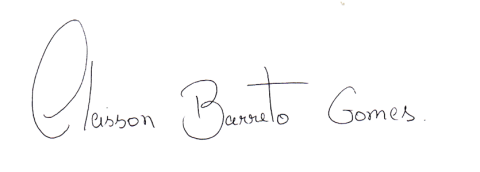 Claisson Barreto Gomes.